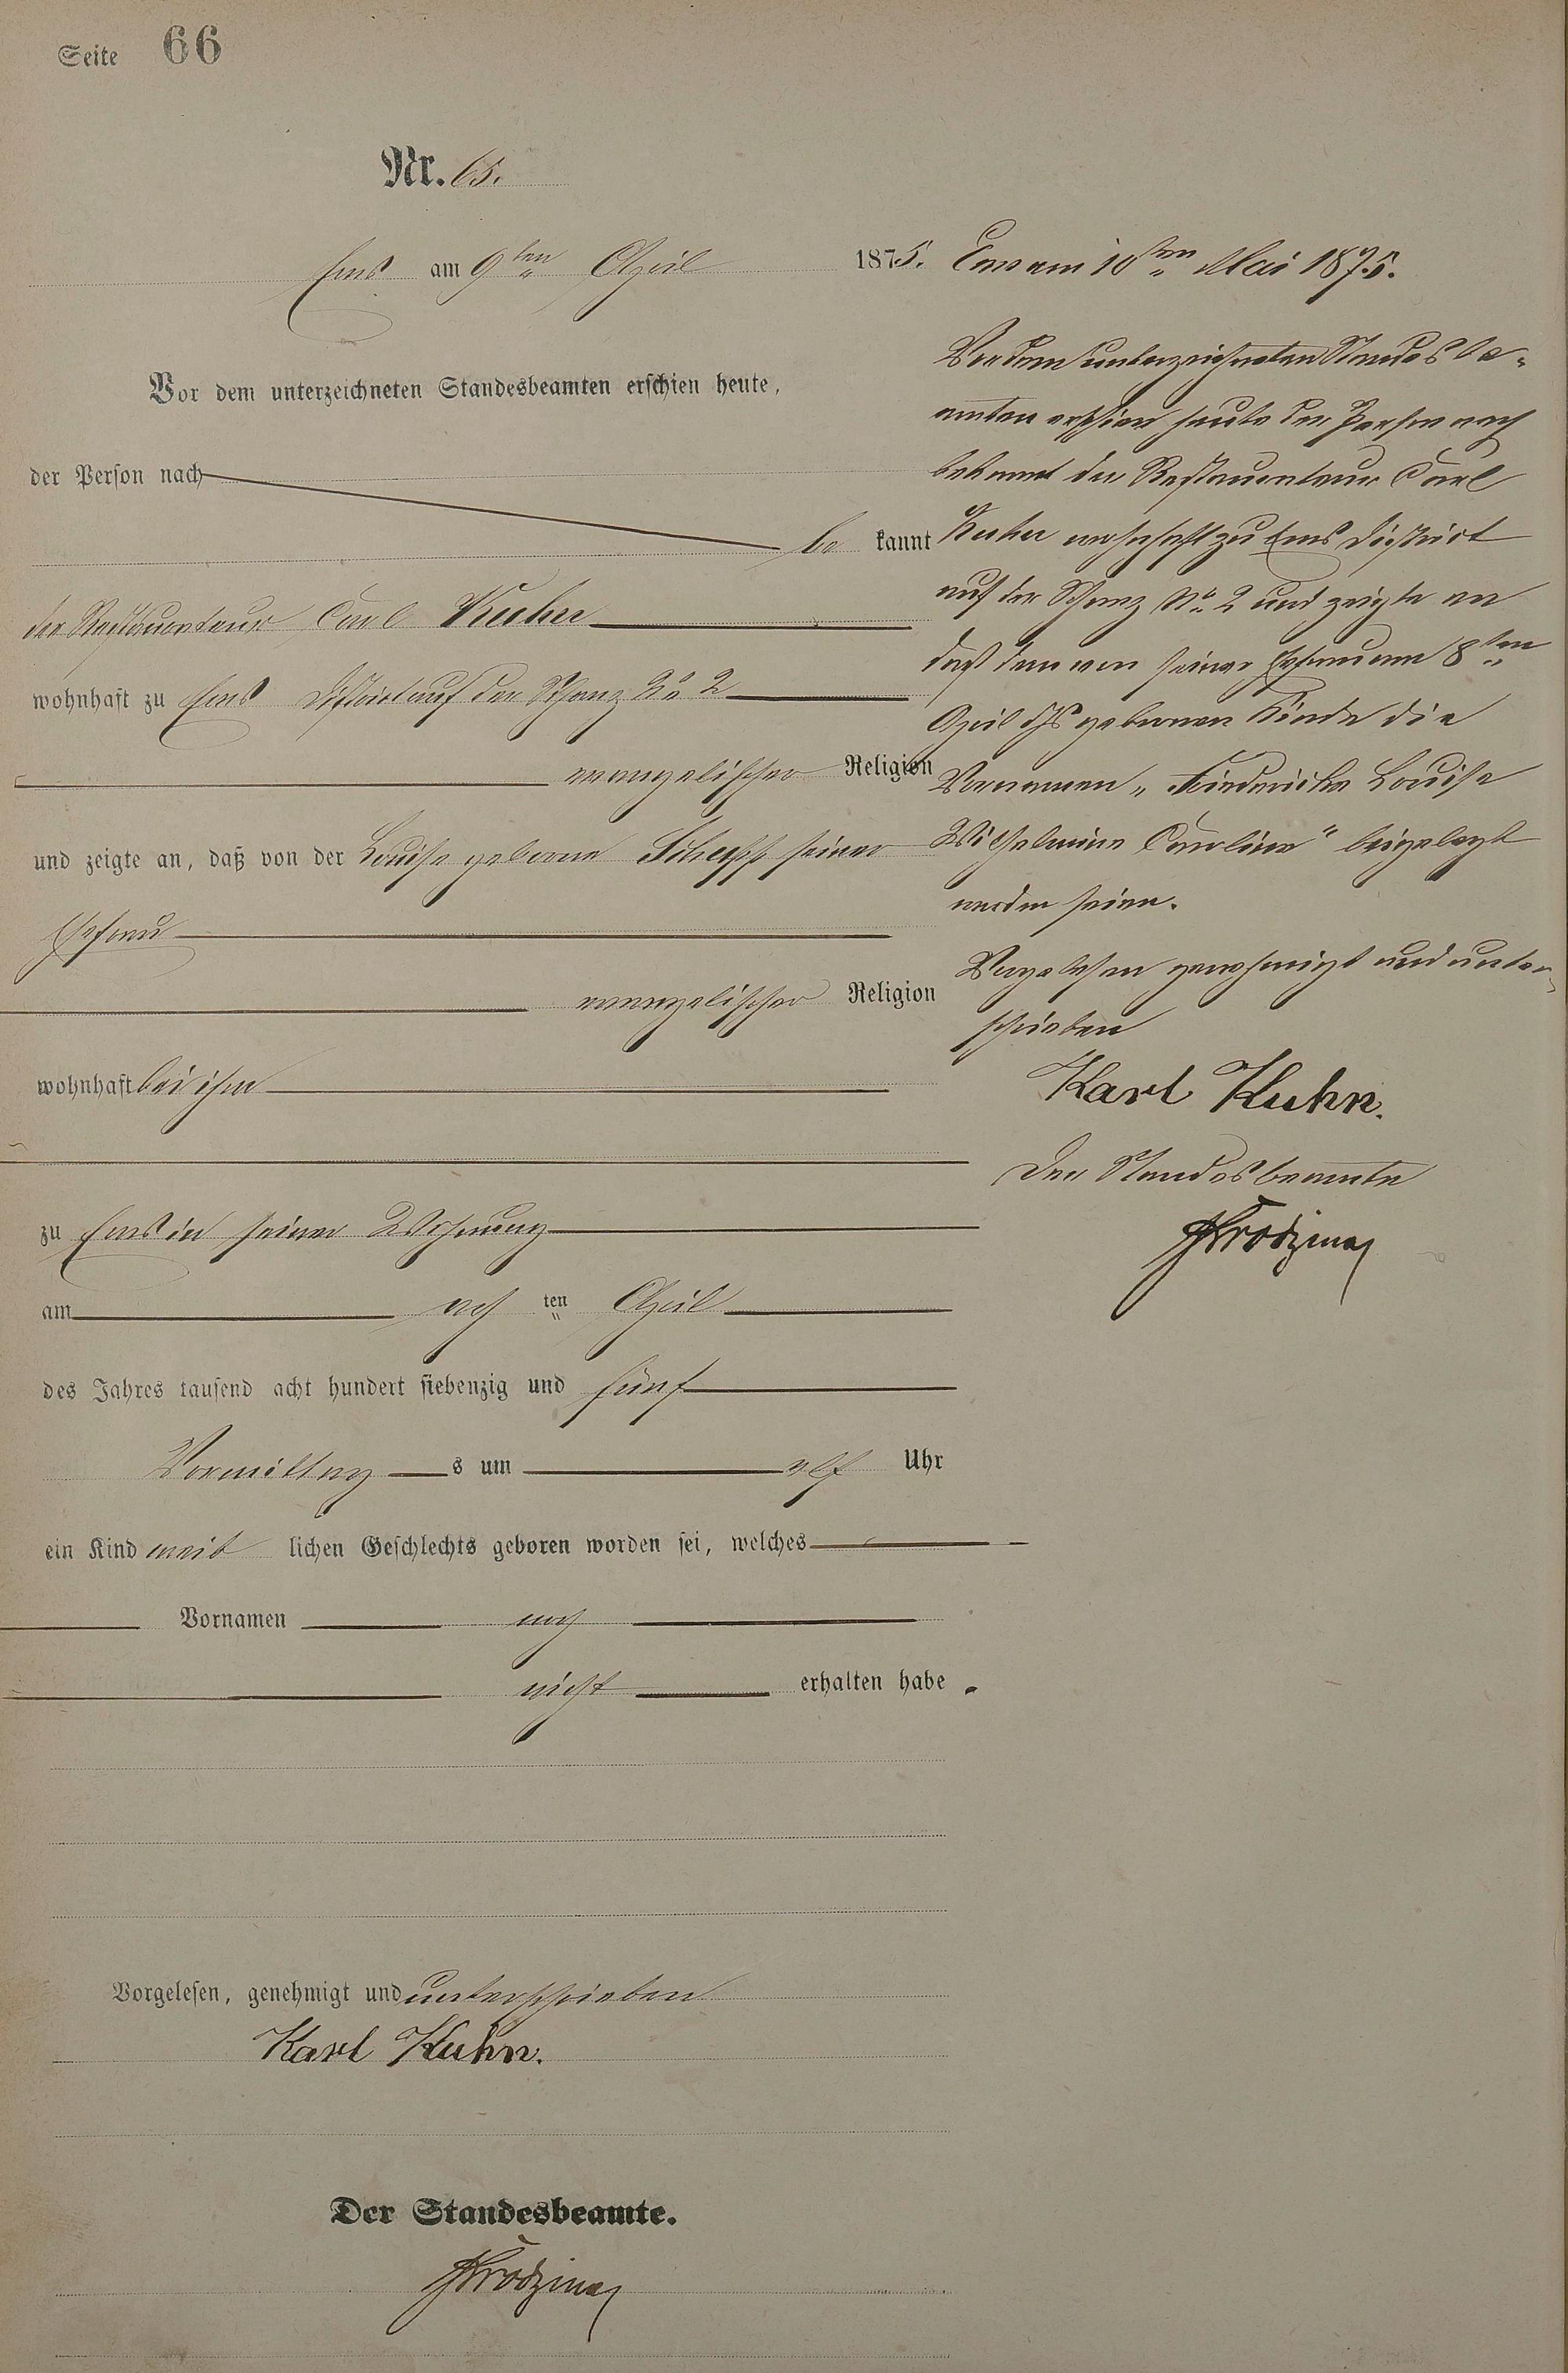 Seite 66
Nr. 65.
Ems am 9ten April 1875.
Vor dem unterzeichneten Standesbeamten erschien heute,
der Person nach
be kannt
der Restaurateur Carl Kuhn
wohnhaft zu Ems District auf der Schanz No 2
evangelischer Religion
und zeigte an, daß von der Louise geborne Schupp seiner
Ehefrau
evangelischer Religion
wohnhaft bei ihm
zu Ems in seiner Wohnung
am ach ten April
des Jahres tausend acht hundert siebenzig und fünf
Vormittag s um elf Uhr
ein Kind weib lichen Geschlechts geboren worden sei, welches
Vornamen noch
nicht erhalten habe.
Vorgelesen, genehmigt und unterschrieben
Karl Kuhn.
Der Standesbeamte.
Ems am 10ten Mai 1875.
Vor dem unterzeichneten Standesbe-
amten erschien heute der Person nach
bekannt der Restaurateur Carl
Kuhn wohnhaft zu Ems District
auf der Schanz No 2 und zeigte an
daß dem von seiner Ehefrau am 8ten
April d Js gebornen Kinde die
Vornamen „Friederike Louise
Wilhelmine Caroline" beigelegt
worden seien.
Vorgelesen genehmigt und unter-
schrieben
Karl Kuhn.
Der Standesbeamte